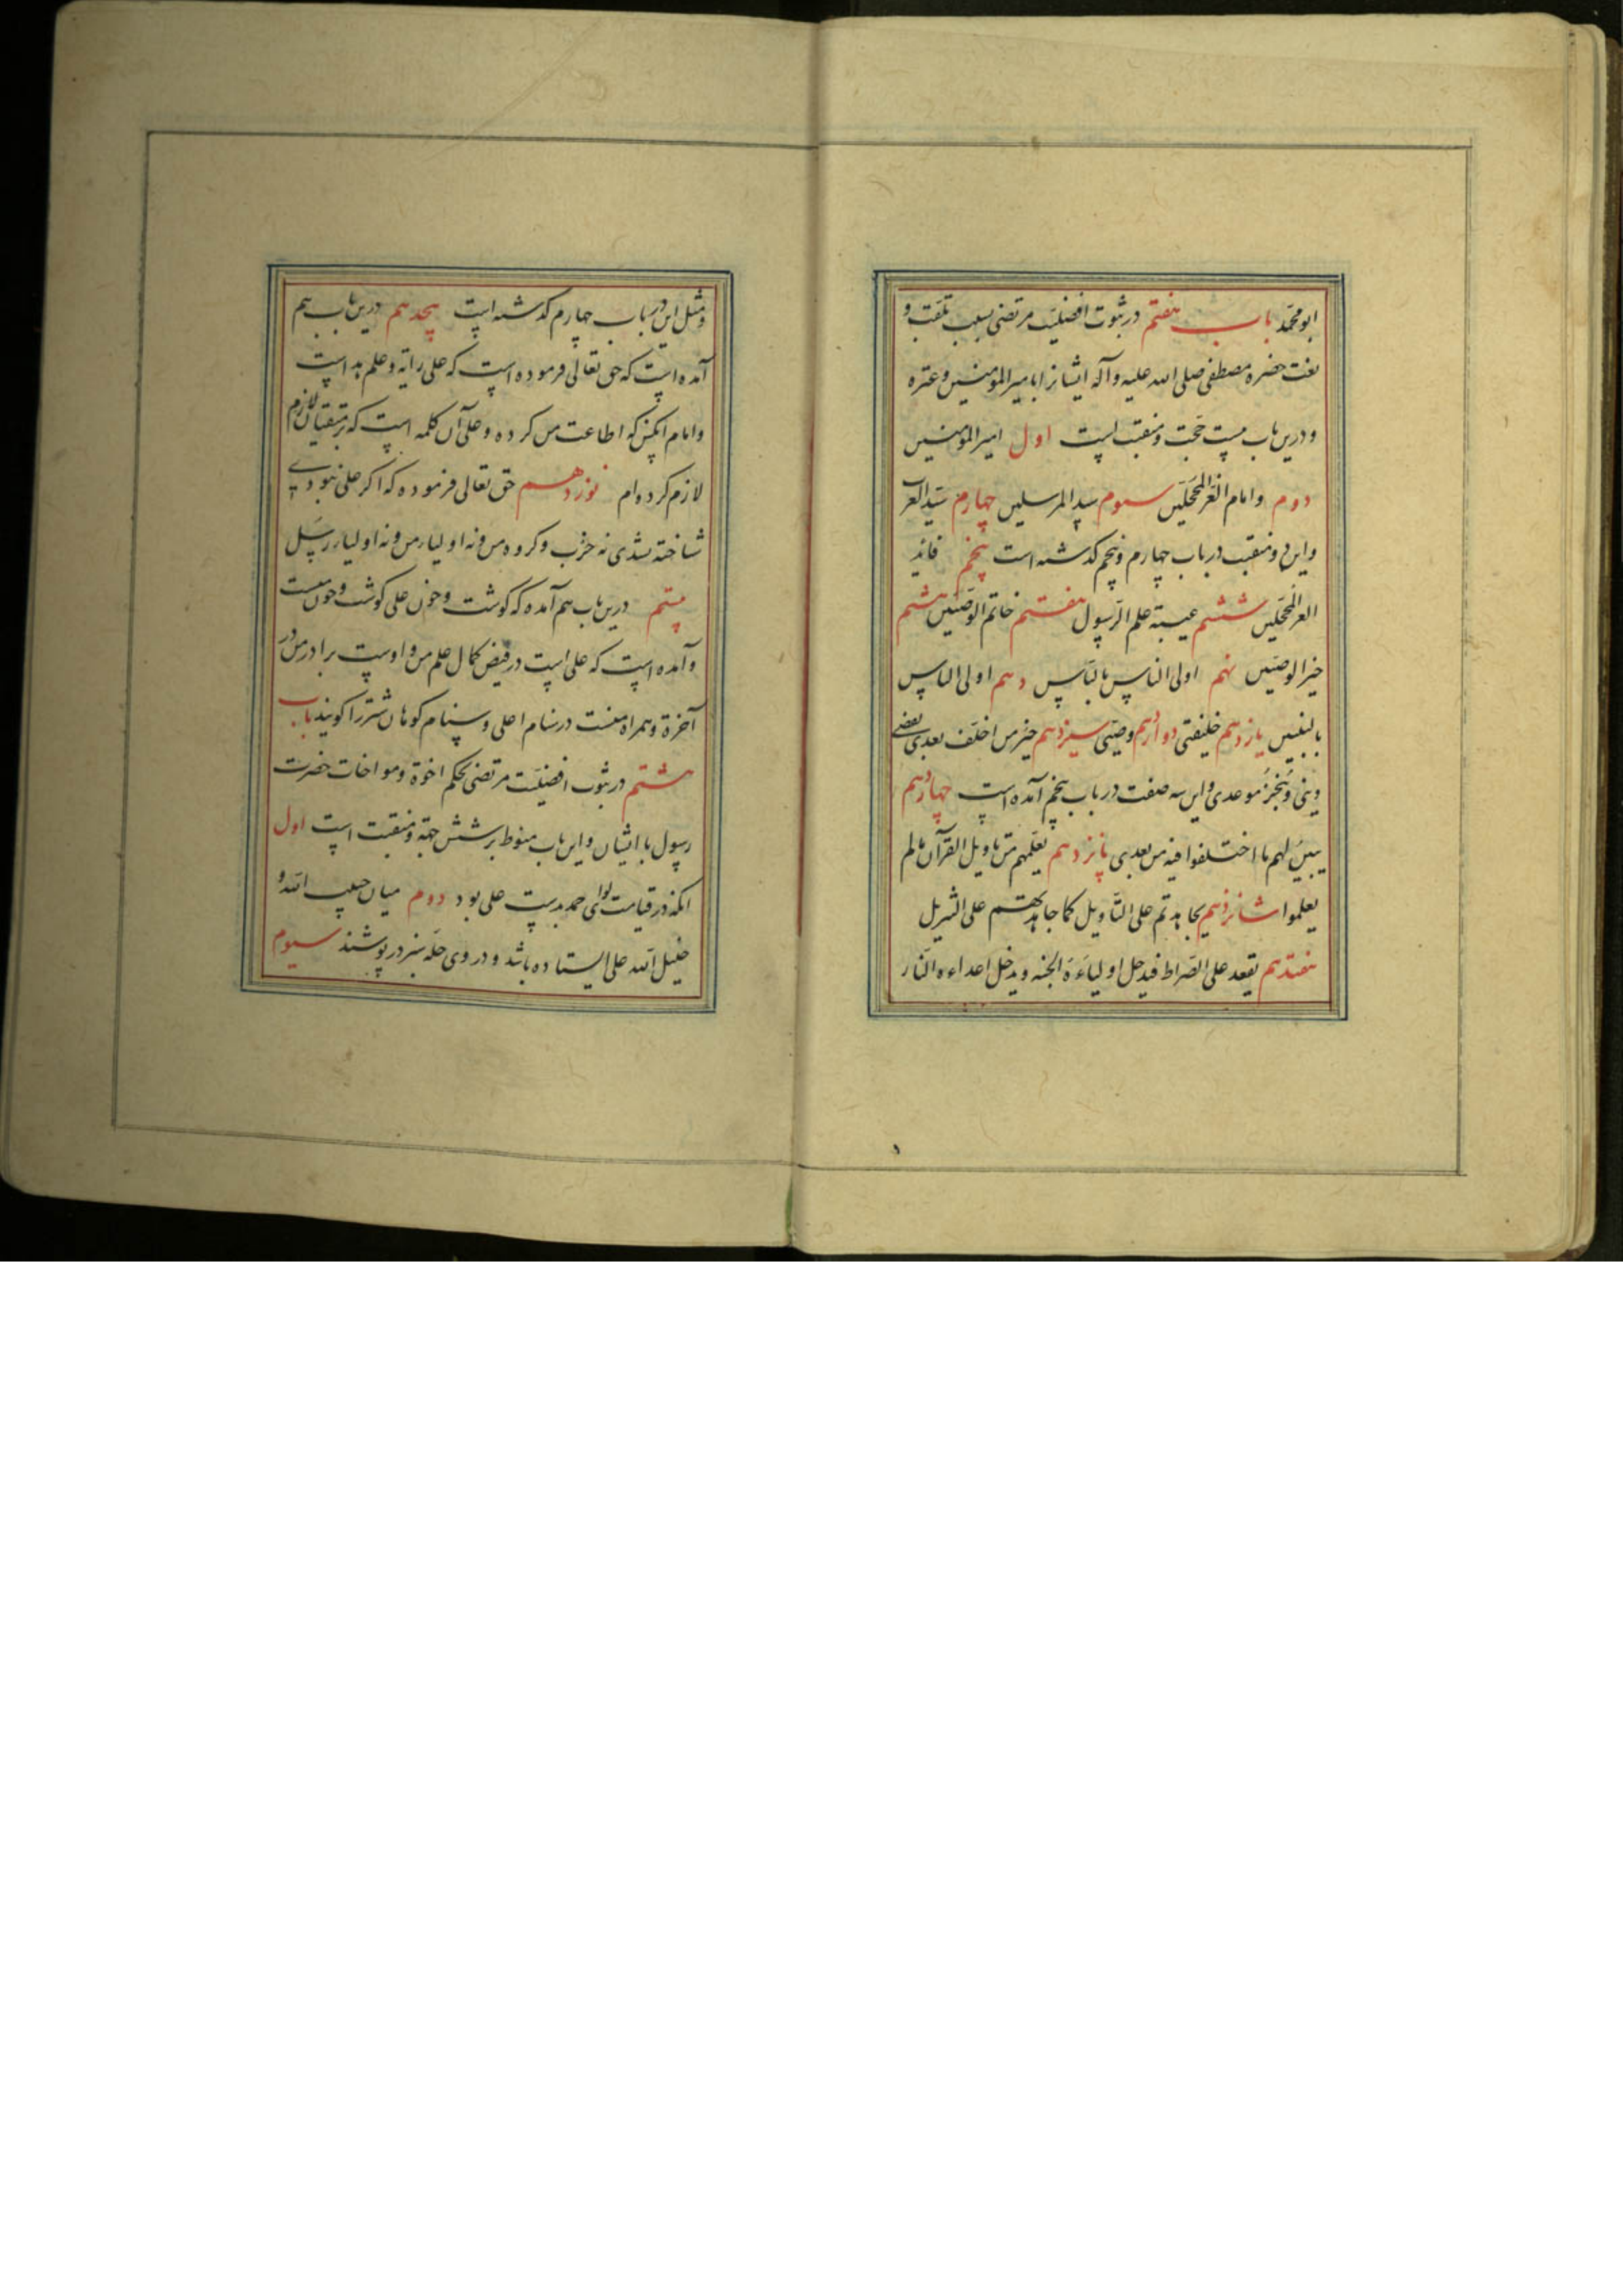 ابو محمد باب هفتم در ثبوت افضلیت مرتضی بسبب تلقب و
نعت حضرة مصطفی صلی الله علیه و آله ایشانرا بامیر المومنین و عتره
و درین باب بیست حجت و منقبت است اول امیر المومنین
دوم و امام الغر المحجلین سیوم سید المرسلین چهارم سید العرب
و این دو منقبت در باب چهارم و پنجم کذشته است پنجم قاید
الغر المحجلین ششم عیبة علم الرسول هفتم خاتم الوصیین هشتم
خیر الوصیین نهم اولی الناس بالناس دهم اولی الناس
بالنبیین یازدهم خلیفتی دوازدهم وصیی سیزدهم خیر من اخلف بعدی یقضی
دینی و ینجز موعدی و این سه صفت در باب پنجم آمده است چهاردهم
یبین لهم ما اختلفوا فیه من بعدی پانزدهم یعلمهم من تاویل القرآن مالم
یعلموا شانزدهم یجاهدهم علی التاویل کما جاهدتهم علی التنزیل
هفتدهم یقعد علی الصراط فیدخل اولیاءه الجنه و یدخل اعداءه النار
و مثل این در باب چهارم کذشته است هیجدهم درین باب هم
آمده است که حق تعالی فرموده است که علی رایة و علم هداست
و امام آنکس که اطاعت من کرده و علی آن کلمه است که بر متقیان لازم
لازم کرده ام نوزدهم حق تعالی فرموده که اکر علی نبودی
شناخته نشدی نه حزب و کروه من و نه اولیاء من و نه اولیاء رسل
بیستم درین باب هم آمده که کوشت و خون علی کوشت و خون منست
و آمده است که علی است در فیض کمال علم من و اوست برادر من در
آخرة و همراه منست در سنام اعلی و سنام کوهان شتر را کویند باب
هشتم در ثبوت افضلیت مرتضی بحکم اخوة و مواخات حضرت
رسول با ایشان و این باب منوط بر شش حجة و منقبت است اول
آنکه در قیامت لوای حمد بدست علی بود دوم میان حبیب الله و
خلیل الله علی ایستاده باشد و در وی حله سبز در پوشند سیوم